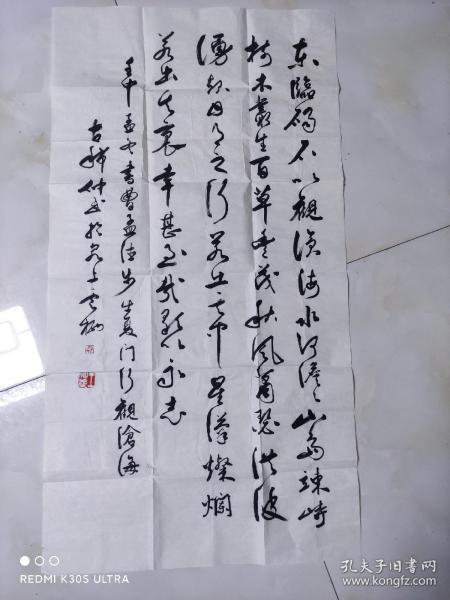 东临碣石以观沧海水何澹澹山岛竦峙
树木丛生百草丰茂秋风萧瑟洪波
涌起日月之行若出其中星汉灿烂
若出其里幸甚至哉歌以永志
孟冬书曹孟德步出夏门行观沧海
REDMI K30S ULTRA
孔夫子旧书网
www.kongfz.com